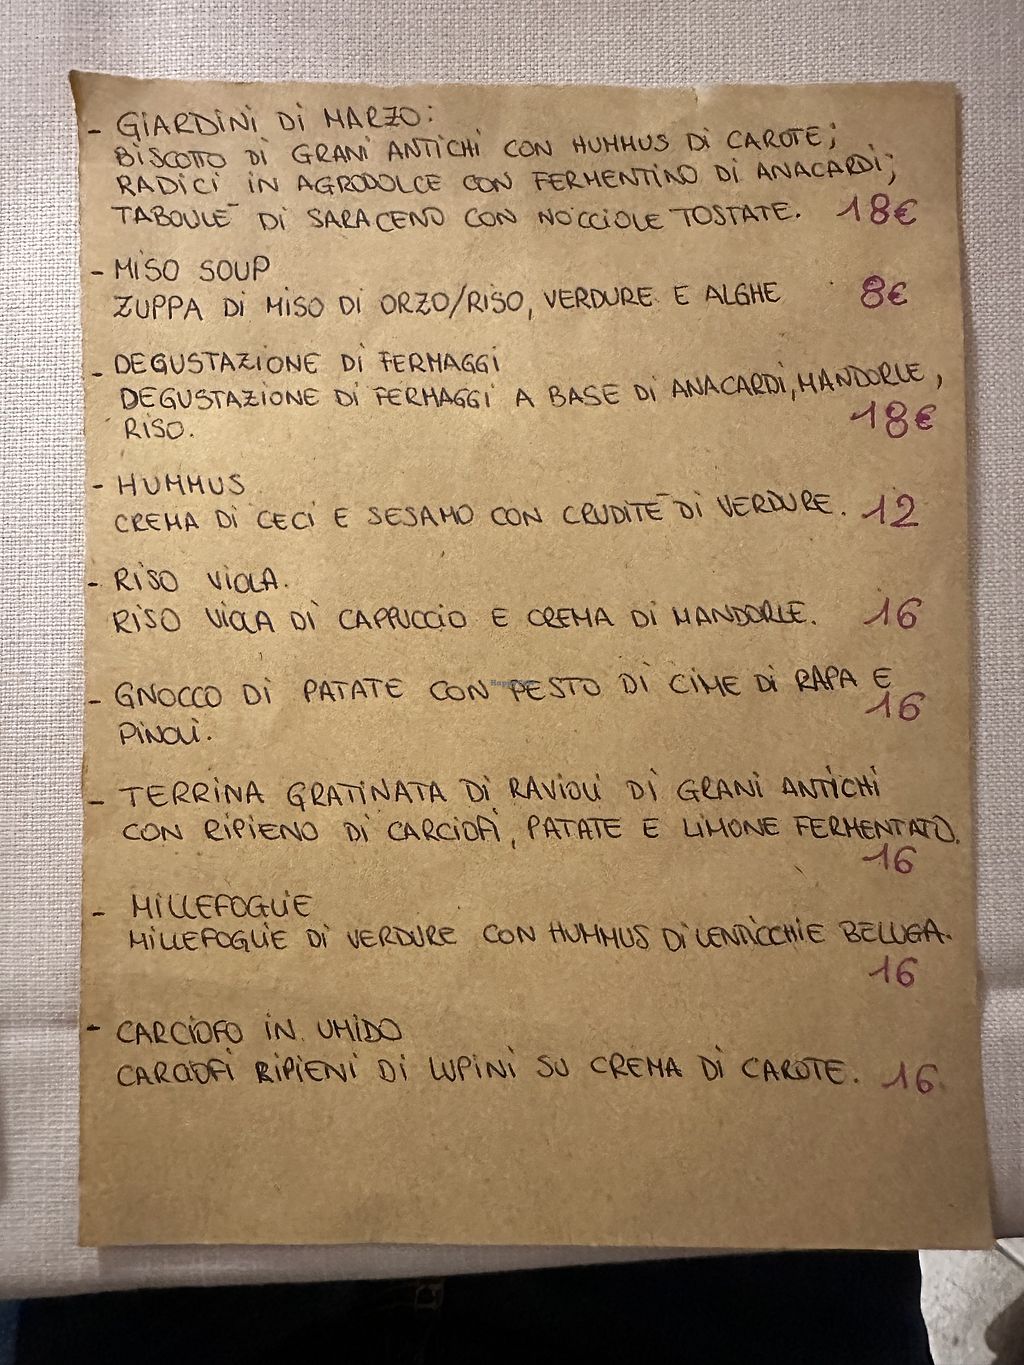 - GIARDINI DI MARZO:
BISCOTTO DI GRANI ANTICHI CON HUMMUS DI CAROTE;
RADICI IN AGRODOLCE CON FERMENTINO DI ANACARDI;
TABOULÈ DI SARACENO CON NOCCIOLE TOSTATE. 18€
- MISO SOUP
ZUPPA DI MISO DI ORZO/RISO, VERDURE E ALGHE 8€
- DEGUSTAZIONE DI FERMAGGI
DEGUSTAZIONE DI FERMAGGI A BASE DI ANACARDI, MANDORLE,
RISO. 18€
- HUMMUS
CREMA DI CECI E SESAMO CON CRUDITÈ DI VERDURE. 12
- RISO VIOLA.
RISO VIOLA DI CAPPUCCIO E CREMA DI MANDORLE. 16
- GNOCCO DI PATATE CON PESTO DI CIME DI RAPA E
PINOLI. 16
- TERRINA GRATINATA DI RAVIOLI DI GRANI ANTICHI
CON RIPIENO DI CARCIOFI, PATATE E LIMONE FERMENTATO.
16
- MILLEFOGLIE
MILLEFOGLIE DI VERDURE CON HUMMUS DI LENTICCHIE BELUGA.
16
- CARCIOFO IN UMIDO
CARCIOFI RIPIENI DI LUPINI SU CREMA DI CAROTE. 16